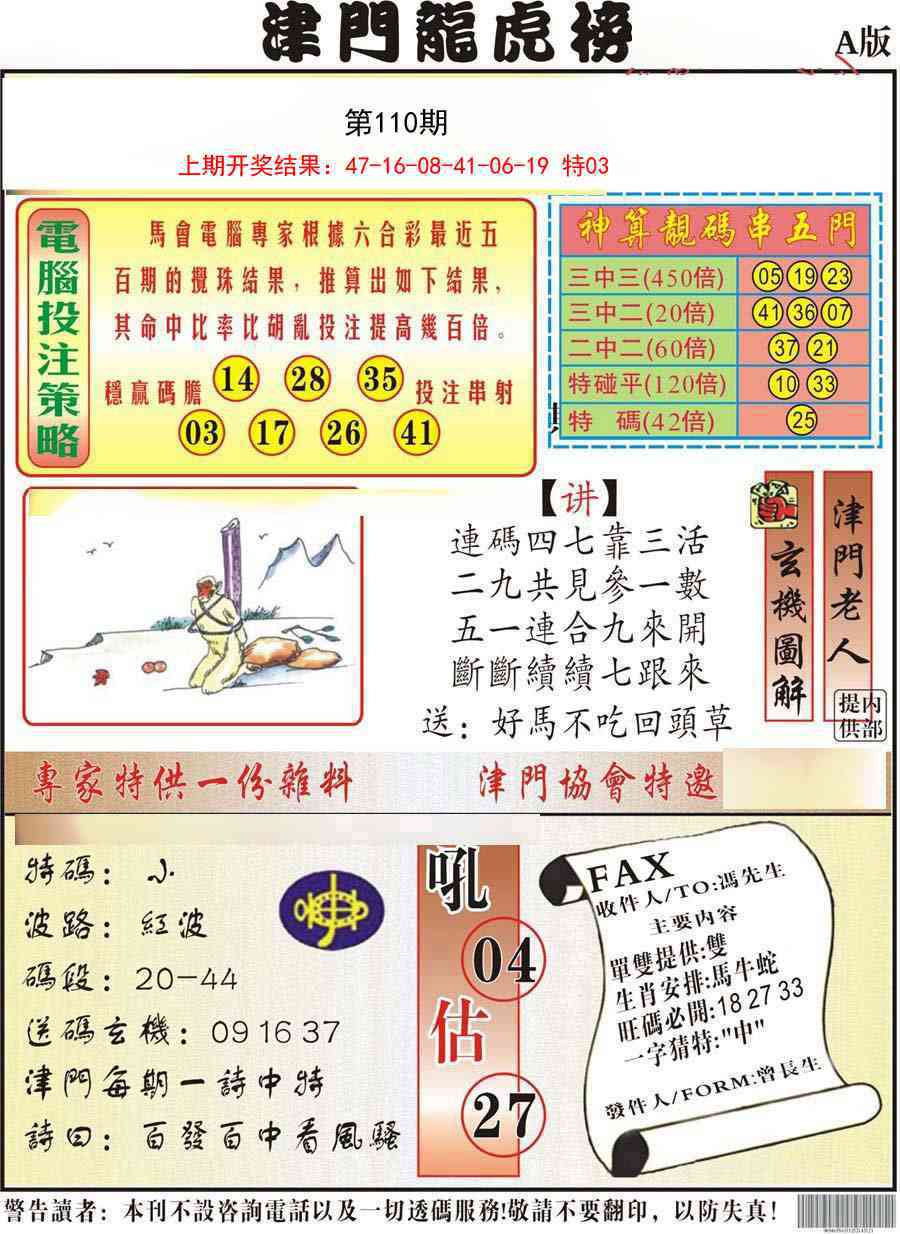 津門龍虎榜
A版
第110期
上期开奖结果：47-16-08-41-06-19 特03
電腦投注策略
馬會電腦專家根據六合彩最近五
百期的攪珠結果，推算出如下結果，
其命中比率比胡亂投注提高幾百倍。
穩贏碼膽 14 28 35 投注串射
03 17 26 41
神算靚碼串五門
三中三(450倍) 05 19 23
三中二(20倍) 41 36 07
二中二(60倍) 37 21
特碰平(120倍) 10 33
特 碼(42倍) 25
【讲】
連碼四七靠三活
二九共見參一數
五一連合九來開
斷斷續續七跟來
送：好馬不吃回頭草
玄機圖解
津門老人
內部提供
專家特供一份雜料 津門協會特邀
特碼：小
波路：紅波
碼段：20-44
送碼玄機：09 16 37
津門每期一詩中特
詩曰：百發百中看風騷
吼
04
估
27
FAX
收件人/TO:馮先生
主要內容
單雙提供:雙
生肖安排:馬牛蛇
旺碼必開:18 27 33
一字猜特:"中"
發件人/FORM:曾長生
警告讀者：本刊不設咨詢電話以及一切透碼服務!敬請不要翻印，以防失真!